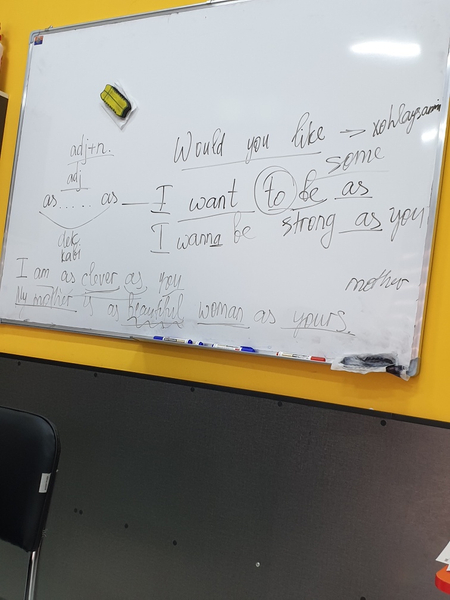 Would you like → xohlaysanmi
some
adj+n.
adj
as ..... as — I want to be as
strong as you
I wanna be
dek
kabi
I am as clever as you
mother
My mother is as beautiful woman as yours.